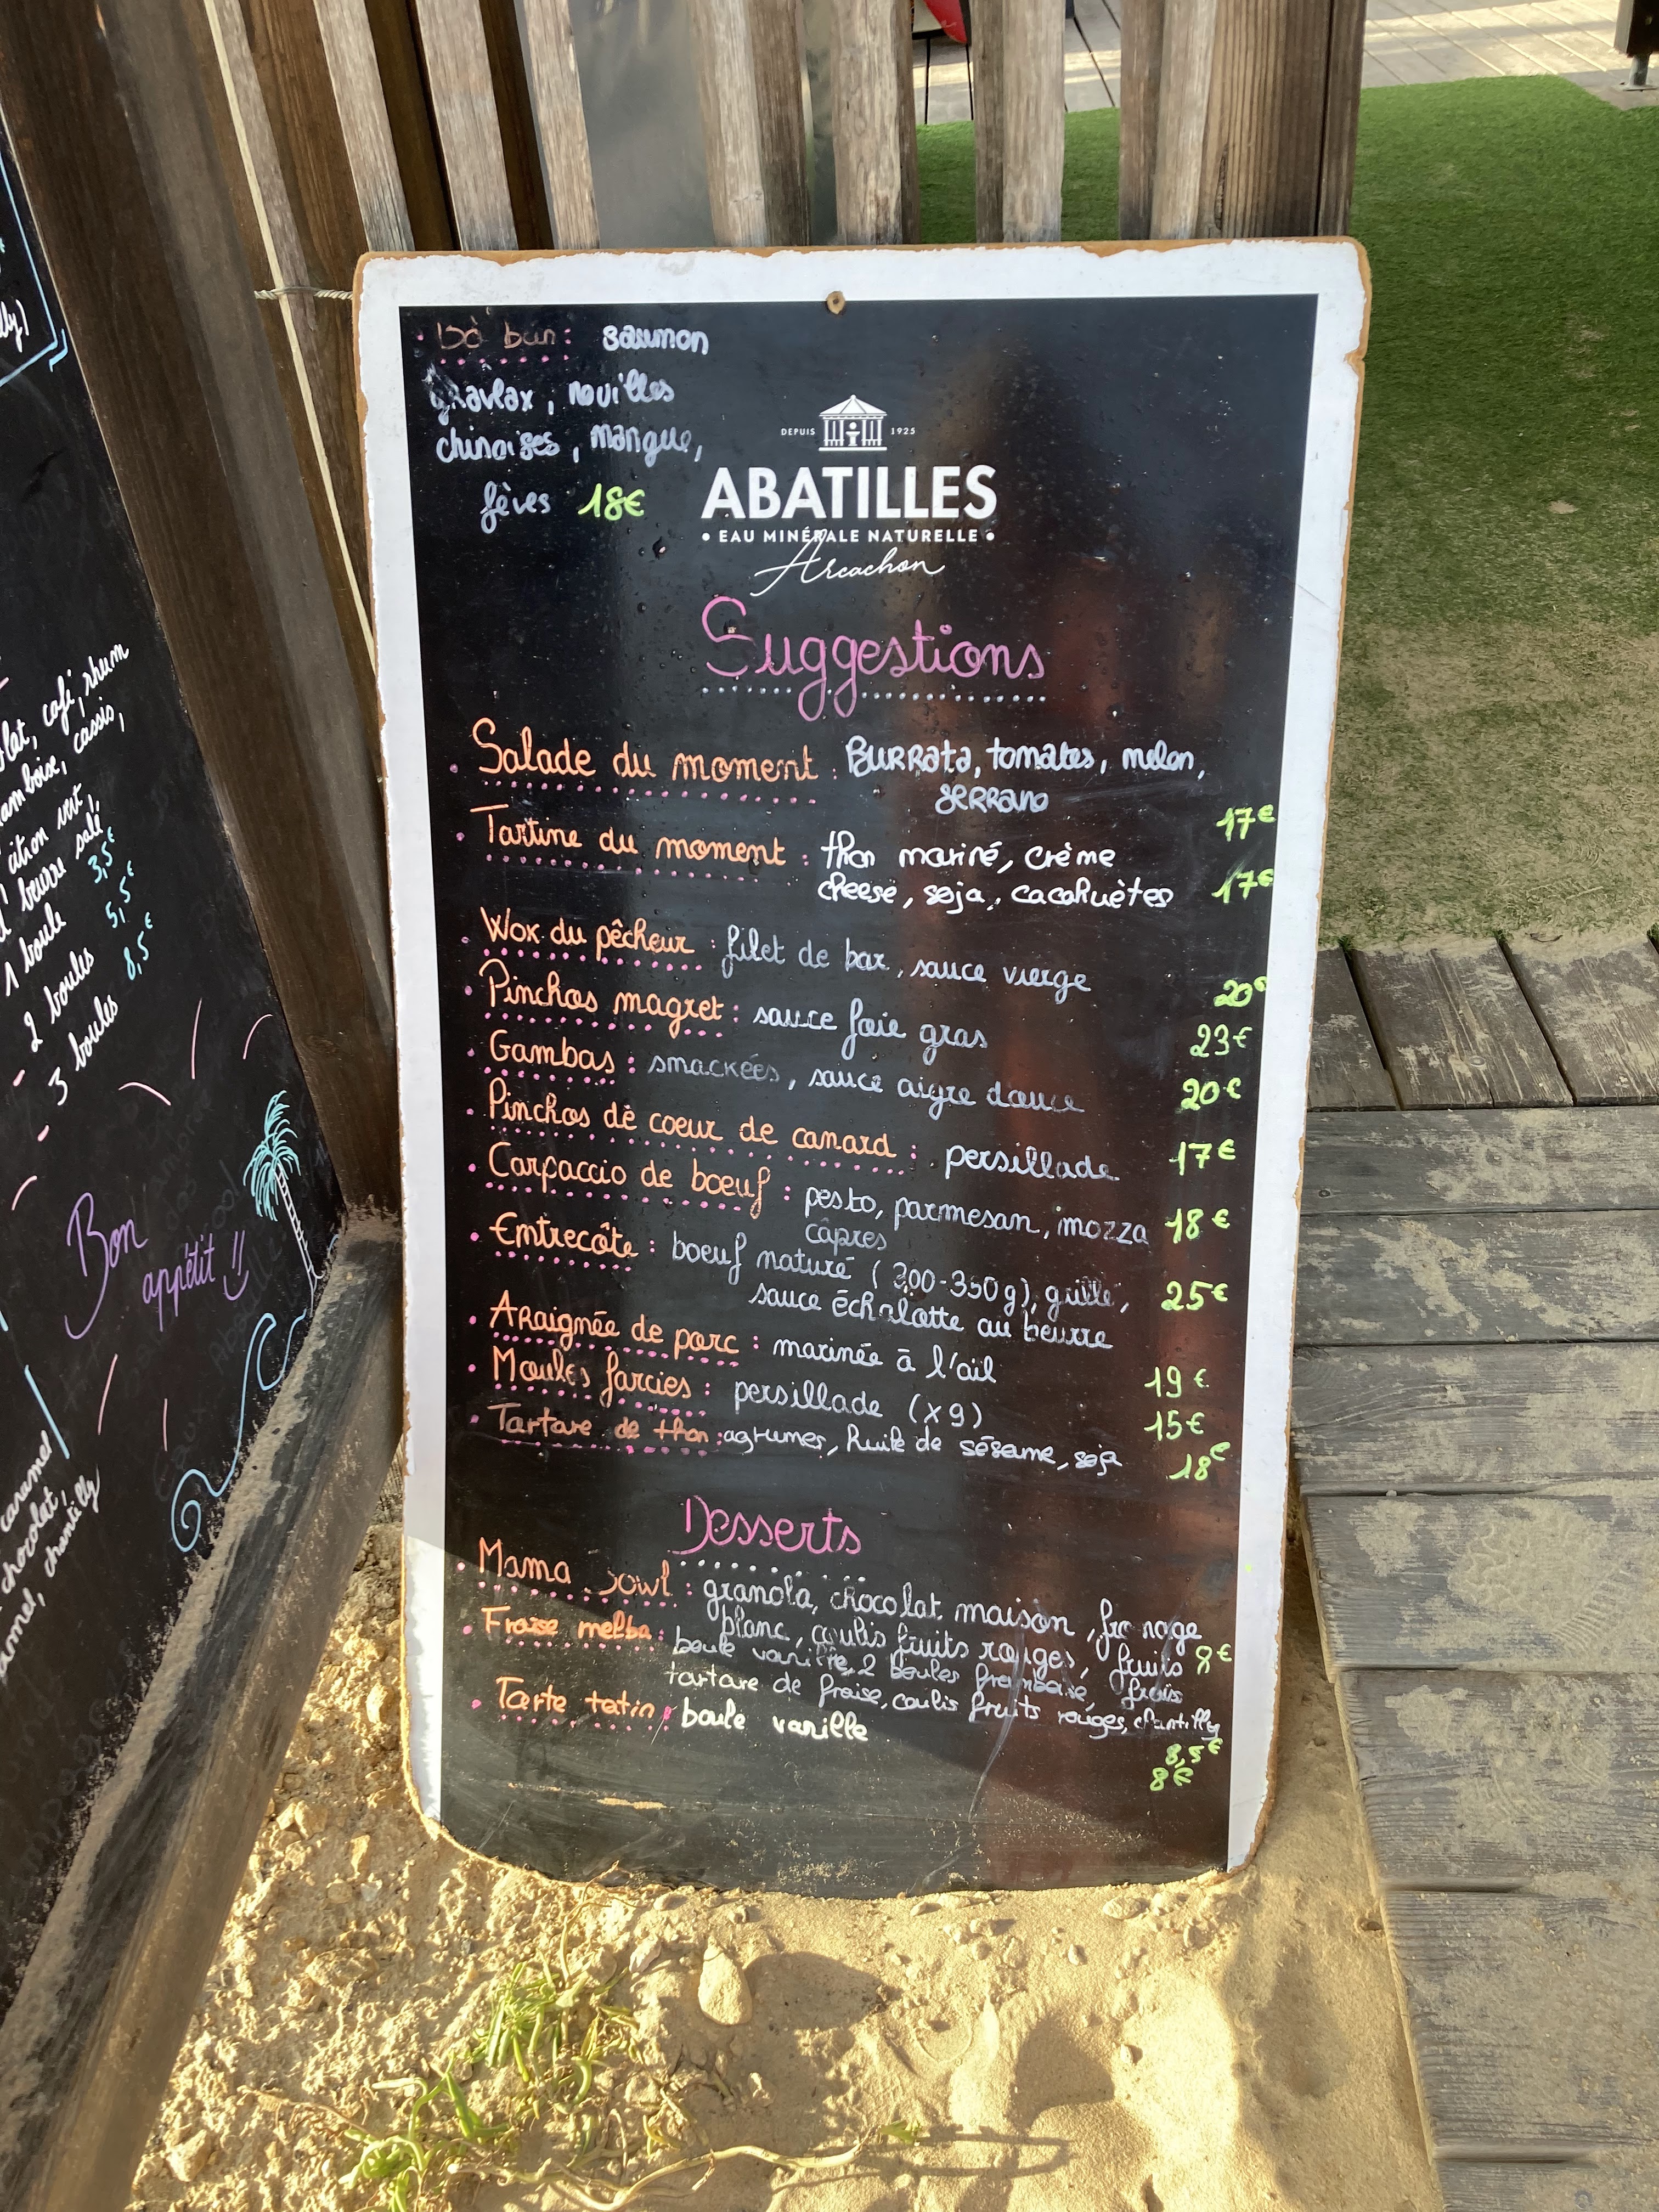 lly)
olat, café, rhum
amboise, cassis,
citron vert,
beurre salé
1 boule 3,5€
- 2 boules 5,5€
- 3 boules 8,5€
Bon
appétit !!
caramel
chocolat,
chantilly
. bò bun : saumon
gravlax, nouilles
chinoises, mangue,
fèves 18€
DEPUIS 1925
ABATILLES
• EAU MINÉRALE NATURELLE •
Arcachon
Suggestions
. Salade du moment : BURRata, tomates, melon,
seRRano 17€
. Tartine du moment : thon mariné, crème
cheese, soja, cacahuètes 17€
. Wok du pêcheur : filet de bar, sauce vierge 20€
. Pinchos magret : sauce foie gras 23€
. Gambas : smackées, sauce aigre douce 20€
. Pinchos de coeur de canard : persillade 17€
. Carpaccio de boeuf : pesto, parmesan, mozza 18€
câpres
. Entrecôte : boeuf nature (300-350g), grillé, 25€
sauce échalotte au beurre
. ARaignée de porc : marinée à l'ail 19€
. Moules farcies : persillade (x9) 15€
. Tartare de thon : agrumes, huile de sésame, soja 18€
Desserts
. Mama bowl : granola, chocolat maison, fromage
blanc, coulis fruits rouges, fruits 8€
frais
. Fraise melba : boule vanille, 2 boules framboise,
tartare de fraise, coulis fruits rouges, chantilly
8,5€
. Tarte tatin : boule vanille 8€